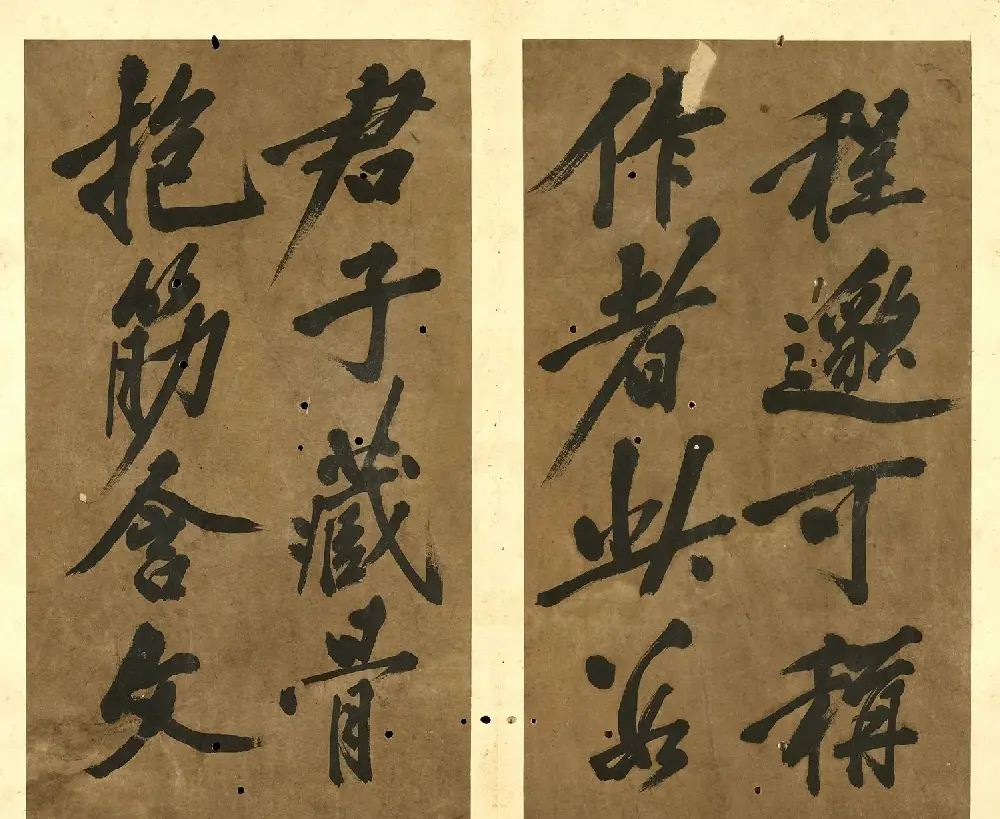 程邈可稱
作者此若
君子藏骨
抱筋含文